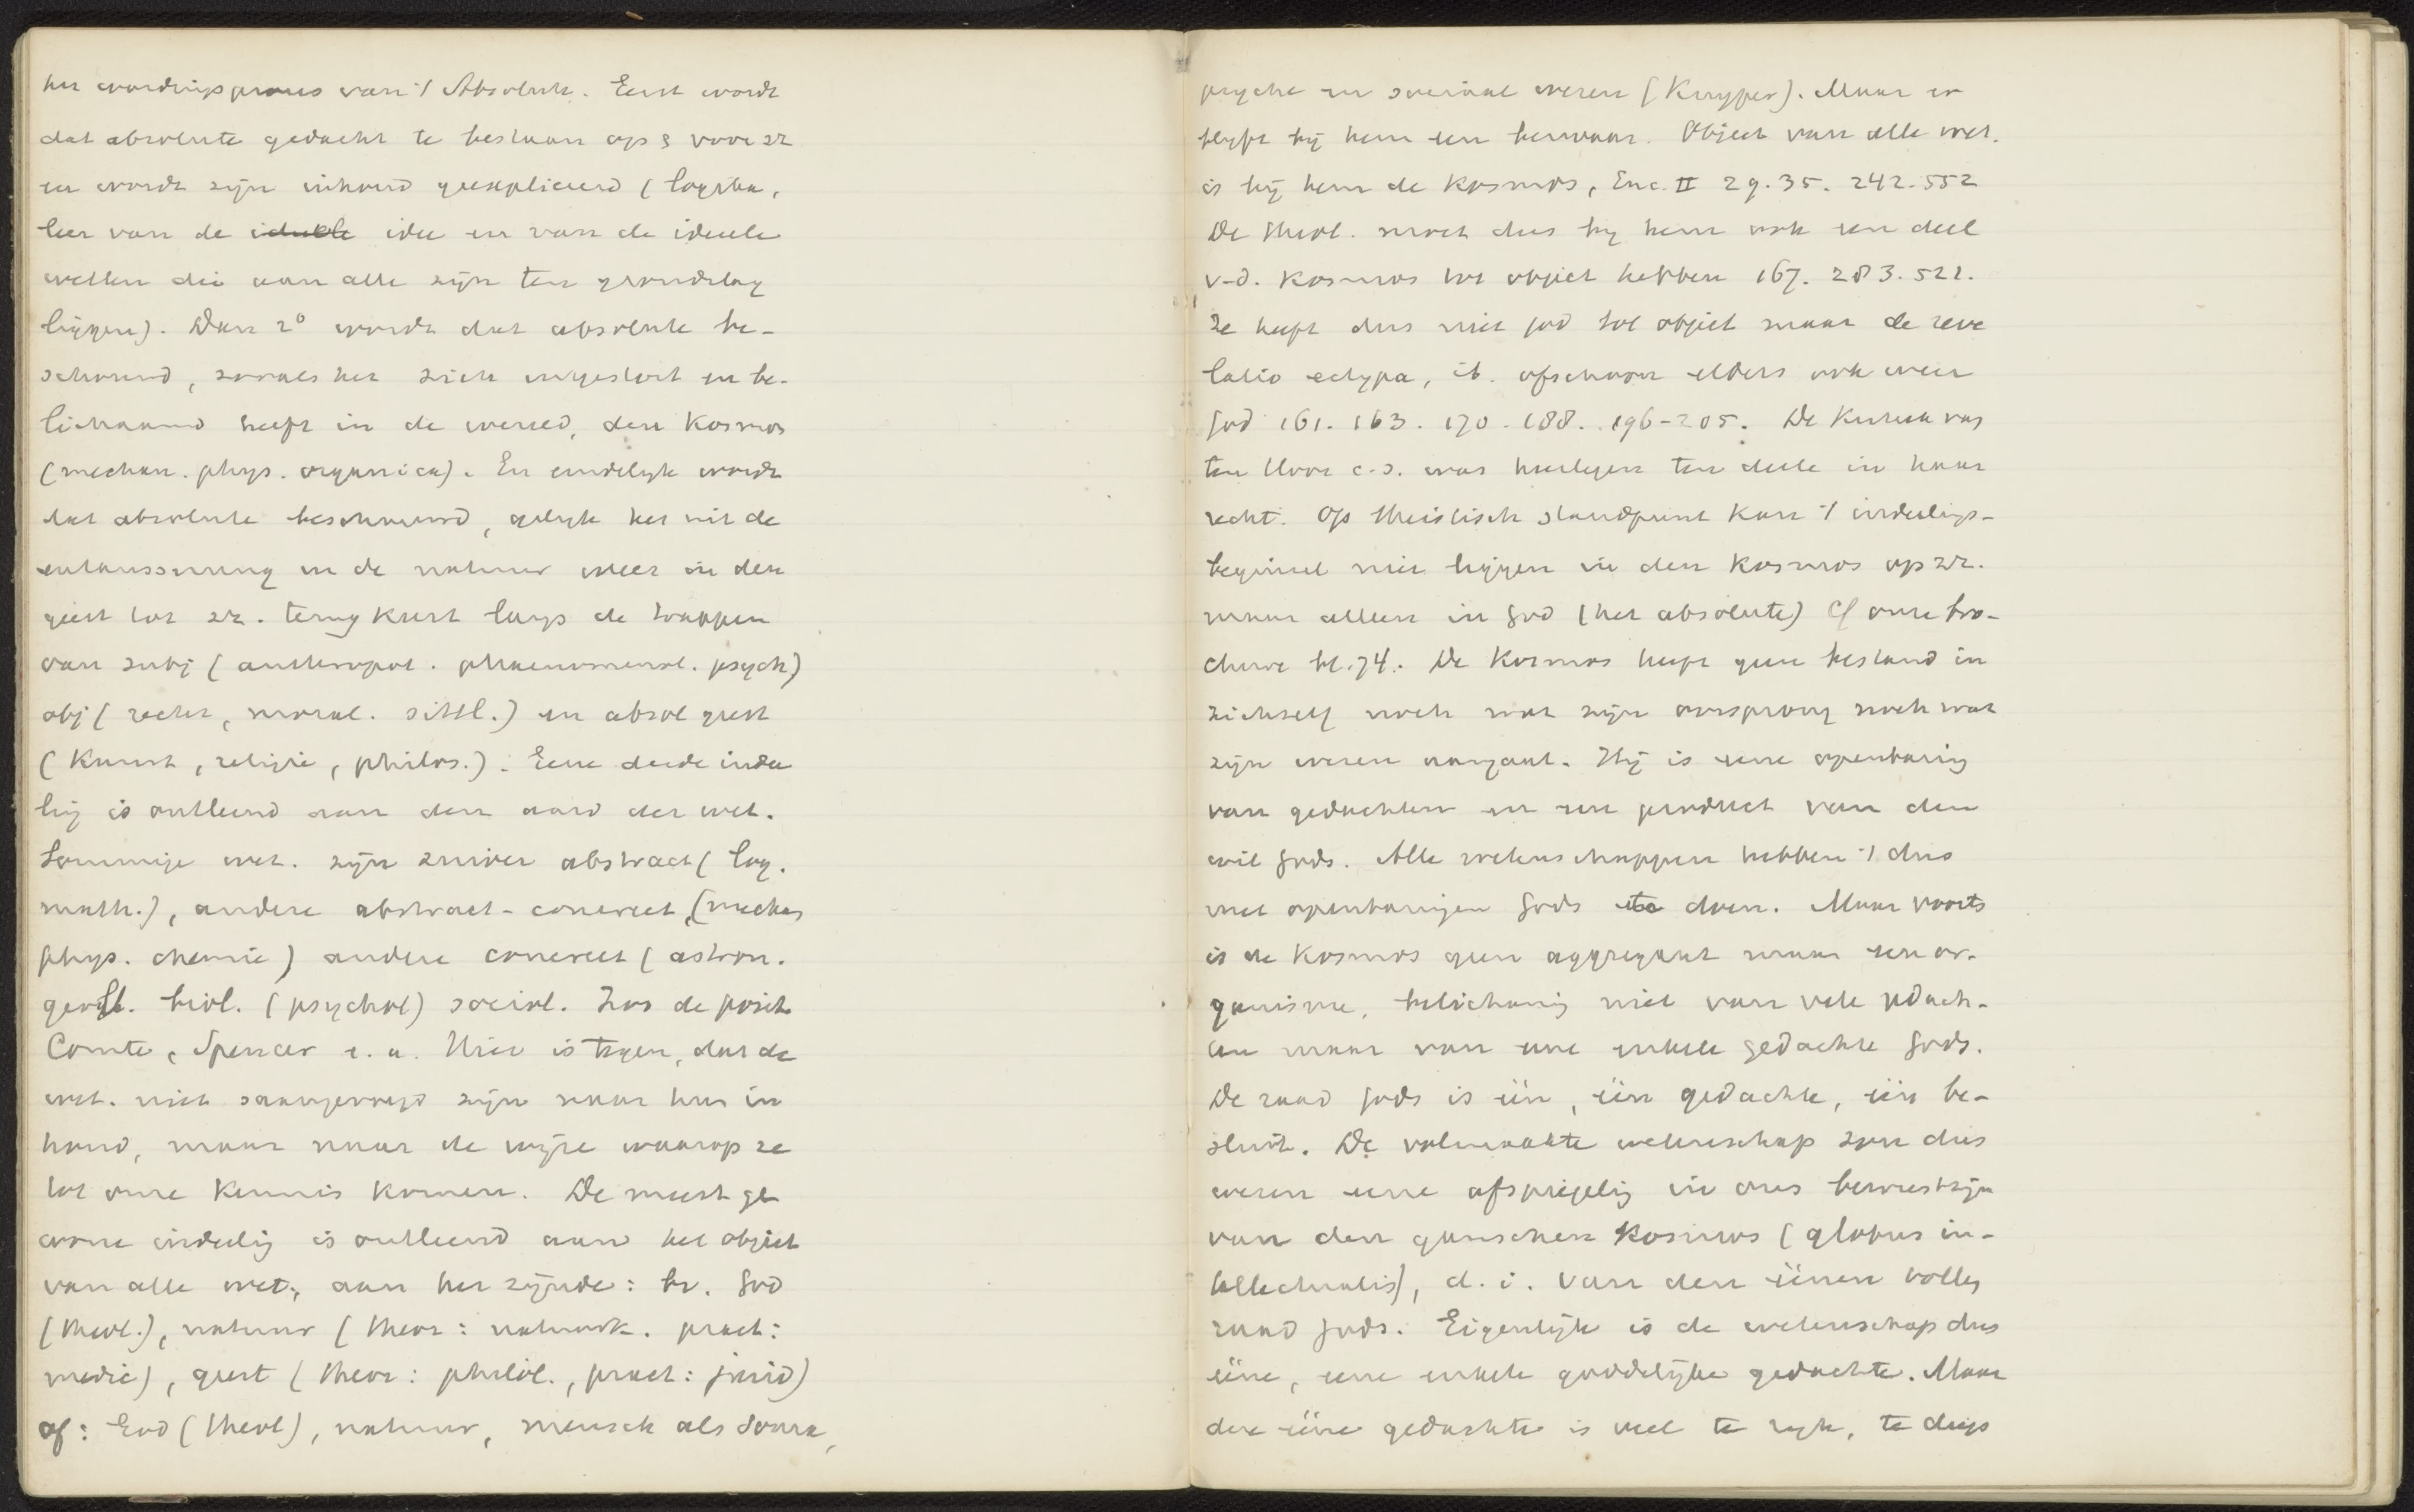 het wordingsproces van 't Absolute. Eerst wordt
dat absolute gedacht te bestaan op & voor zz
en wordt zijn inhoud geexpliceerd (logika,
leer van de ideele idee en van de ideele
wetten die aan alle zijn ten grondslag
liggen). Dan 2° wordt dat absolute be-
schouwd, zooals het zich uitgestort en be-
lichaamd heeft in de wereld, den Kosmos
(mechan. phys. organica). En eindelyk wordt
dat absolute beschouwd, gelyk het uit de
entäusserung in de natuur weer in den
geest tot zz. terugkeert langs de trappen
van subj (anthropol. phaenomenol. psych)
obj (recht, moral. sittl.) en absol geest
(Kunst, religie, philos.). Eene derde indee
lig is ontleend aan den aard der wet.
Sommige wet. zijn zuiver abstract (log.
math.), andere abstract-concreet, (mechan
phys. chemie) andere concreet (astron.
geol. biol. (psychol) sociol. Zoo de posit.
Comte, Spencer e.a. Hier is tegen, dat de
wet. niet saamgevoegd zijn naar hun in
houd, maar naar de wijze waarop ze
tot onze Kennis Komen. De meest ge
wone indeelig is ontleend aan het object
van alle wet., aan het zijnde: bv. God
(theol.), natuur (theor: natuurk. pract:
medic), geest (theor: philol., pract: jurid)
of: God (theol), natuur, mensch als soma,
psyche en sociaal wezen (Kuyper). Maar er
blyft bij hem een bezwaar. Object van alle wet.
is bij hem de Kosmos, Enc. II 29. 35. 242. 552
De theol. moet dus by hem ook een deel
v-d. Kosmos tot object hebben 167. 283. 522.
Ze heeft dus niet God tot object maar de reve
latio ectypa, ib. ofschoon elders ook weer
God 161. 163. 170. 188. 196-205. De Kritiek van
ten Hoor c.s. was hiertegen ten deele in haar
recht. Op theistisch standpunt kan 't indeelings-
beginsel niet liggen in den Kosmos op zz.
maar alleen in God (het absolute) Cf onze bro-
chure bl. 74. De Kosmos heeft geen bestand in
zichzelf noch wat zijn oorsprong noch wat
zijn wezen aangaat. Hij is eene openbaring
van gedachten en een product van den
wil Gods. Alle wetenschappen hebben 't dus
met openbaringen Gods te doen. Maar voorts
is de Kosmos geen aggregaat maar een or-
ganisme, belichamig niet van vele gdach-
ten maar van eene enkele gedachte Gods.
De raad Gods is één, één gedachte, één be-
sluit. De volmaakte wetenschap zou dus
wezen eene afspiegelig in ons bewustzijn
van den ganschen Kosmos (globus in-
tellectualis), d.i. van den éénen vollen
raad Gods. Eigenlijk is de wetenschap dus
ééne, eene enkele goddelijke gedachte. Maar
deze ééne gedachte is veel te rijk, te diep